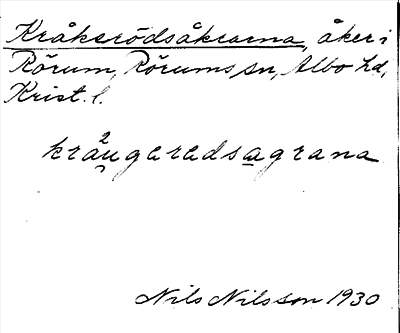 Kråkerödsåkrarna, åker i
Rörum, Rörums sn, Albo hd,
Krist. l.
kräu̯garadsagrana
Nils Nilsson 1930